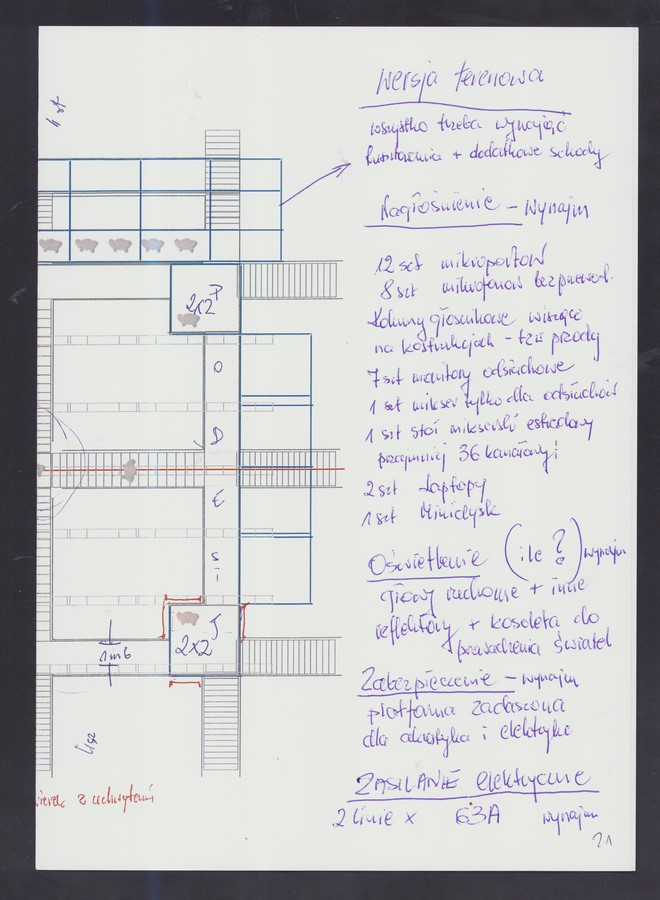 wersja terenowa
wszystko trzeba wynająć
+ dodatkowe schody
Nagłośnienie - wynajm
12 szt mikroportów
8 szt mikrofonów bezprzewod.
Kolumny głośnikowe wiszące
na konstrukcjach - tzw przody
7 szt monitory odsłuchowe
1 szt mikser tylko dla odsłuchów
1 szt stół mikserski estradowy
przynajmniej 36 kanałowy!
2 szt Laptopy
1 szt Minidysk
Oświetlenie (ile ?) wynajm
głowy ruchome + inne
reflektory + konsoleta do
prowadzenia świateł
Zabezpieczenie - wynajm
platforma zadaszona
dla akustyka i elektryka
ZASILANIE elektryczne
2 linie x 63A wynajm
21
4 szt
2x2
P
O
D
E
S
T
2x2
1m6
4 szt
z uchwytami